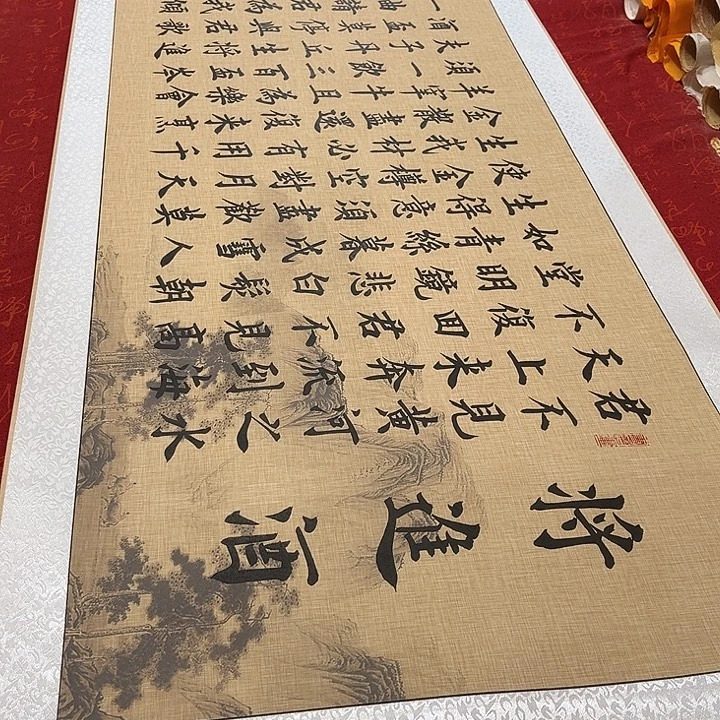 將進酒
君不見黃河之水
天上來奔流到海
不復回君不見高
堂明鏡悲白髮朝
如青絲暮成雪人
生得意須盡歡莫
使金樽空對月天
生我材必有用千
金散盡還復來烹
羊宰牛且為樂會
須一飲三百盃岑
夫子丹丘生將進
酒盃莫停與君歌
一曲請君為我傾